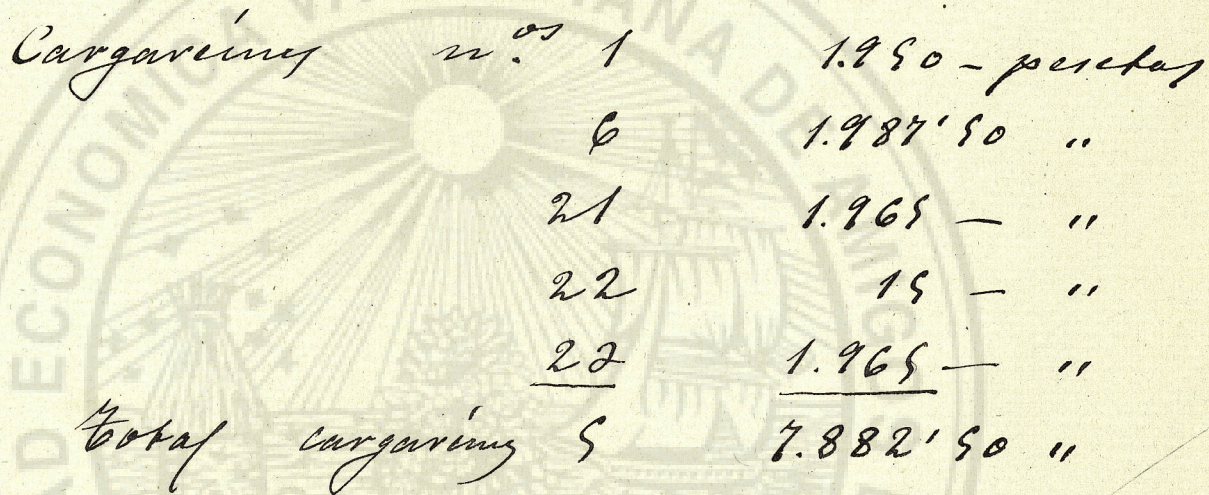 Cargarémes n.os 1 1.950 - pesetas
6 1.987'50 "
21 1.965 — "
22 15 — "
23 1.965 — "
Total cargarémes 5 7.882'50 "
ECONOMICA
DE